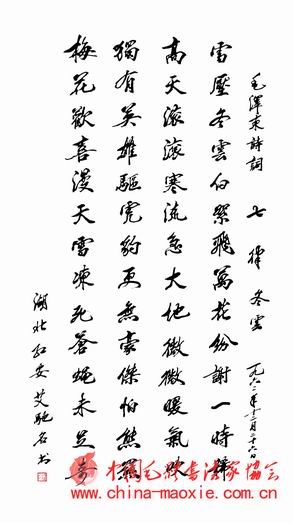 毛澤東詩詞 七律 冬雲 一九六二年十二月二十六日
雪壓冬雲白絮飛萬花紛謝一時稀
高天滾滾寒流急大地微微暖氣吹
獨有英雄驅虎豹更無豪傑怕熊羆
梅花歡喜漫天雪凍死蒼蠅未足奇
湖北红安艾馳名书
中國毛體書法家協會
www.china-maoxie.com.cn